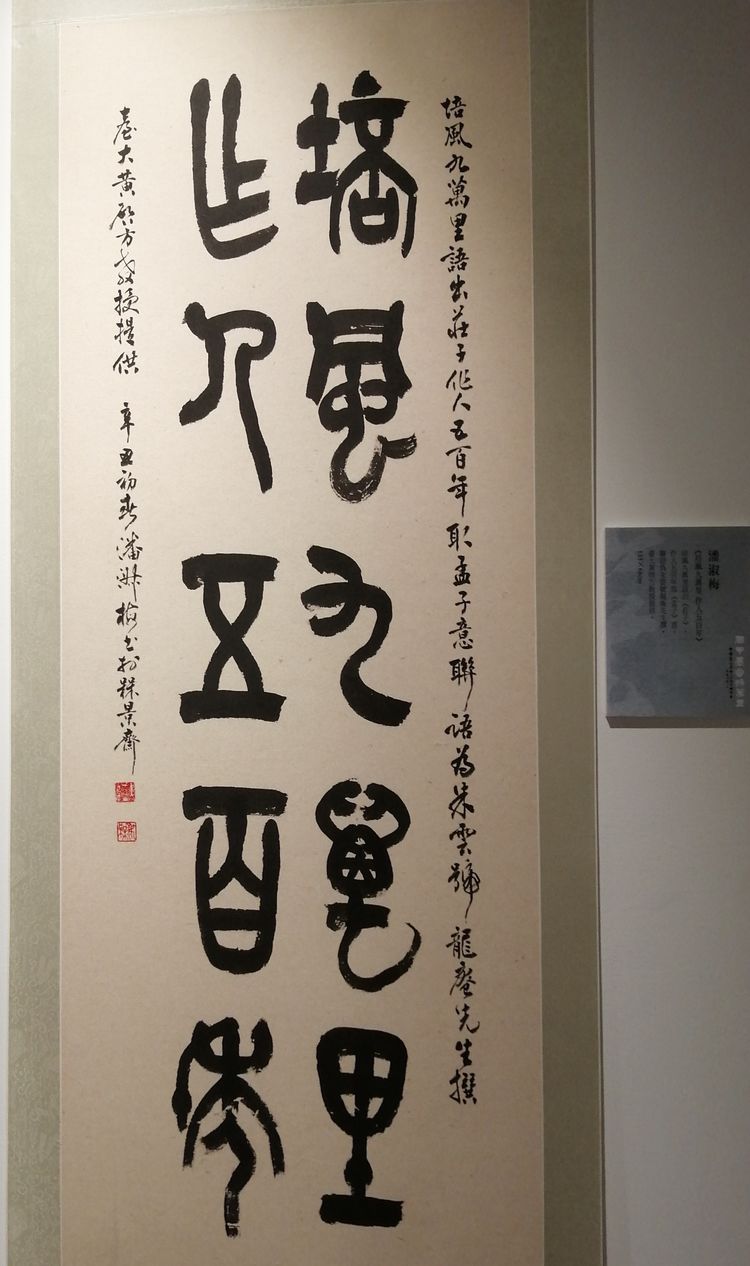 培風九萬里語出莊子作人五百年取孟子意聯語為朱雲號龍庵先生撰
培風九萬里
作人五百年
臺大黃啟方教授提供 辛丑初春潘淑梅書於景齋
潘淑梅
《培風九萬里 作人五百年》